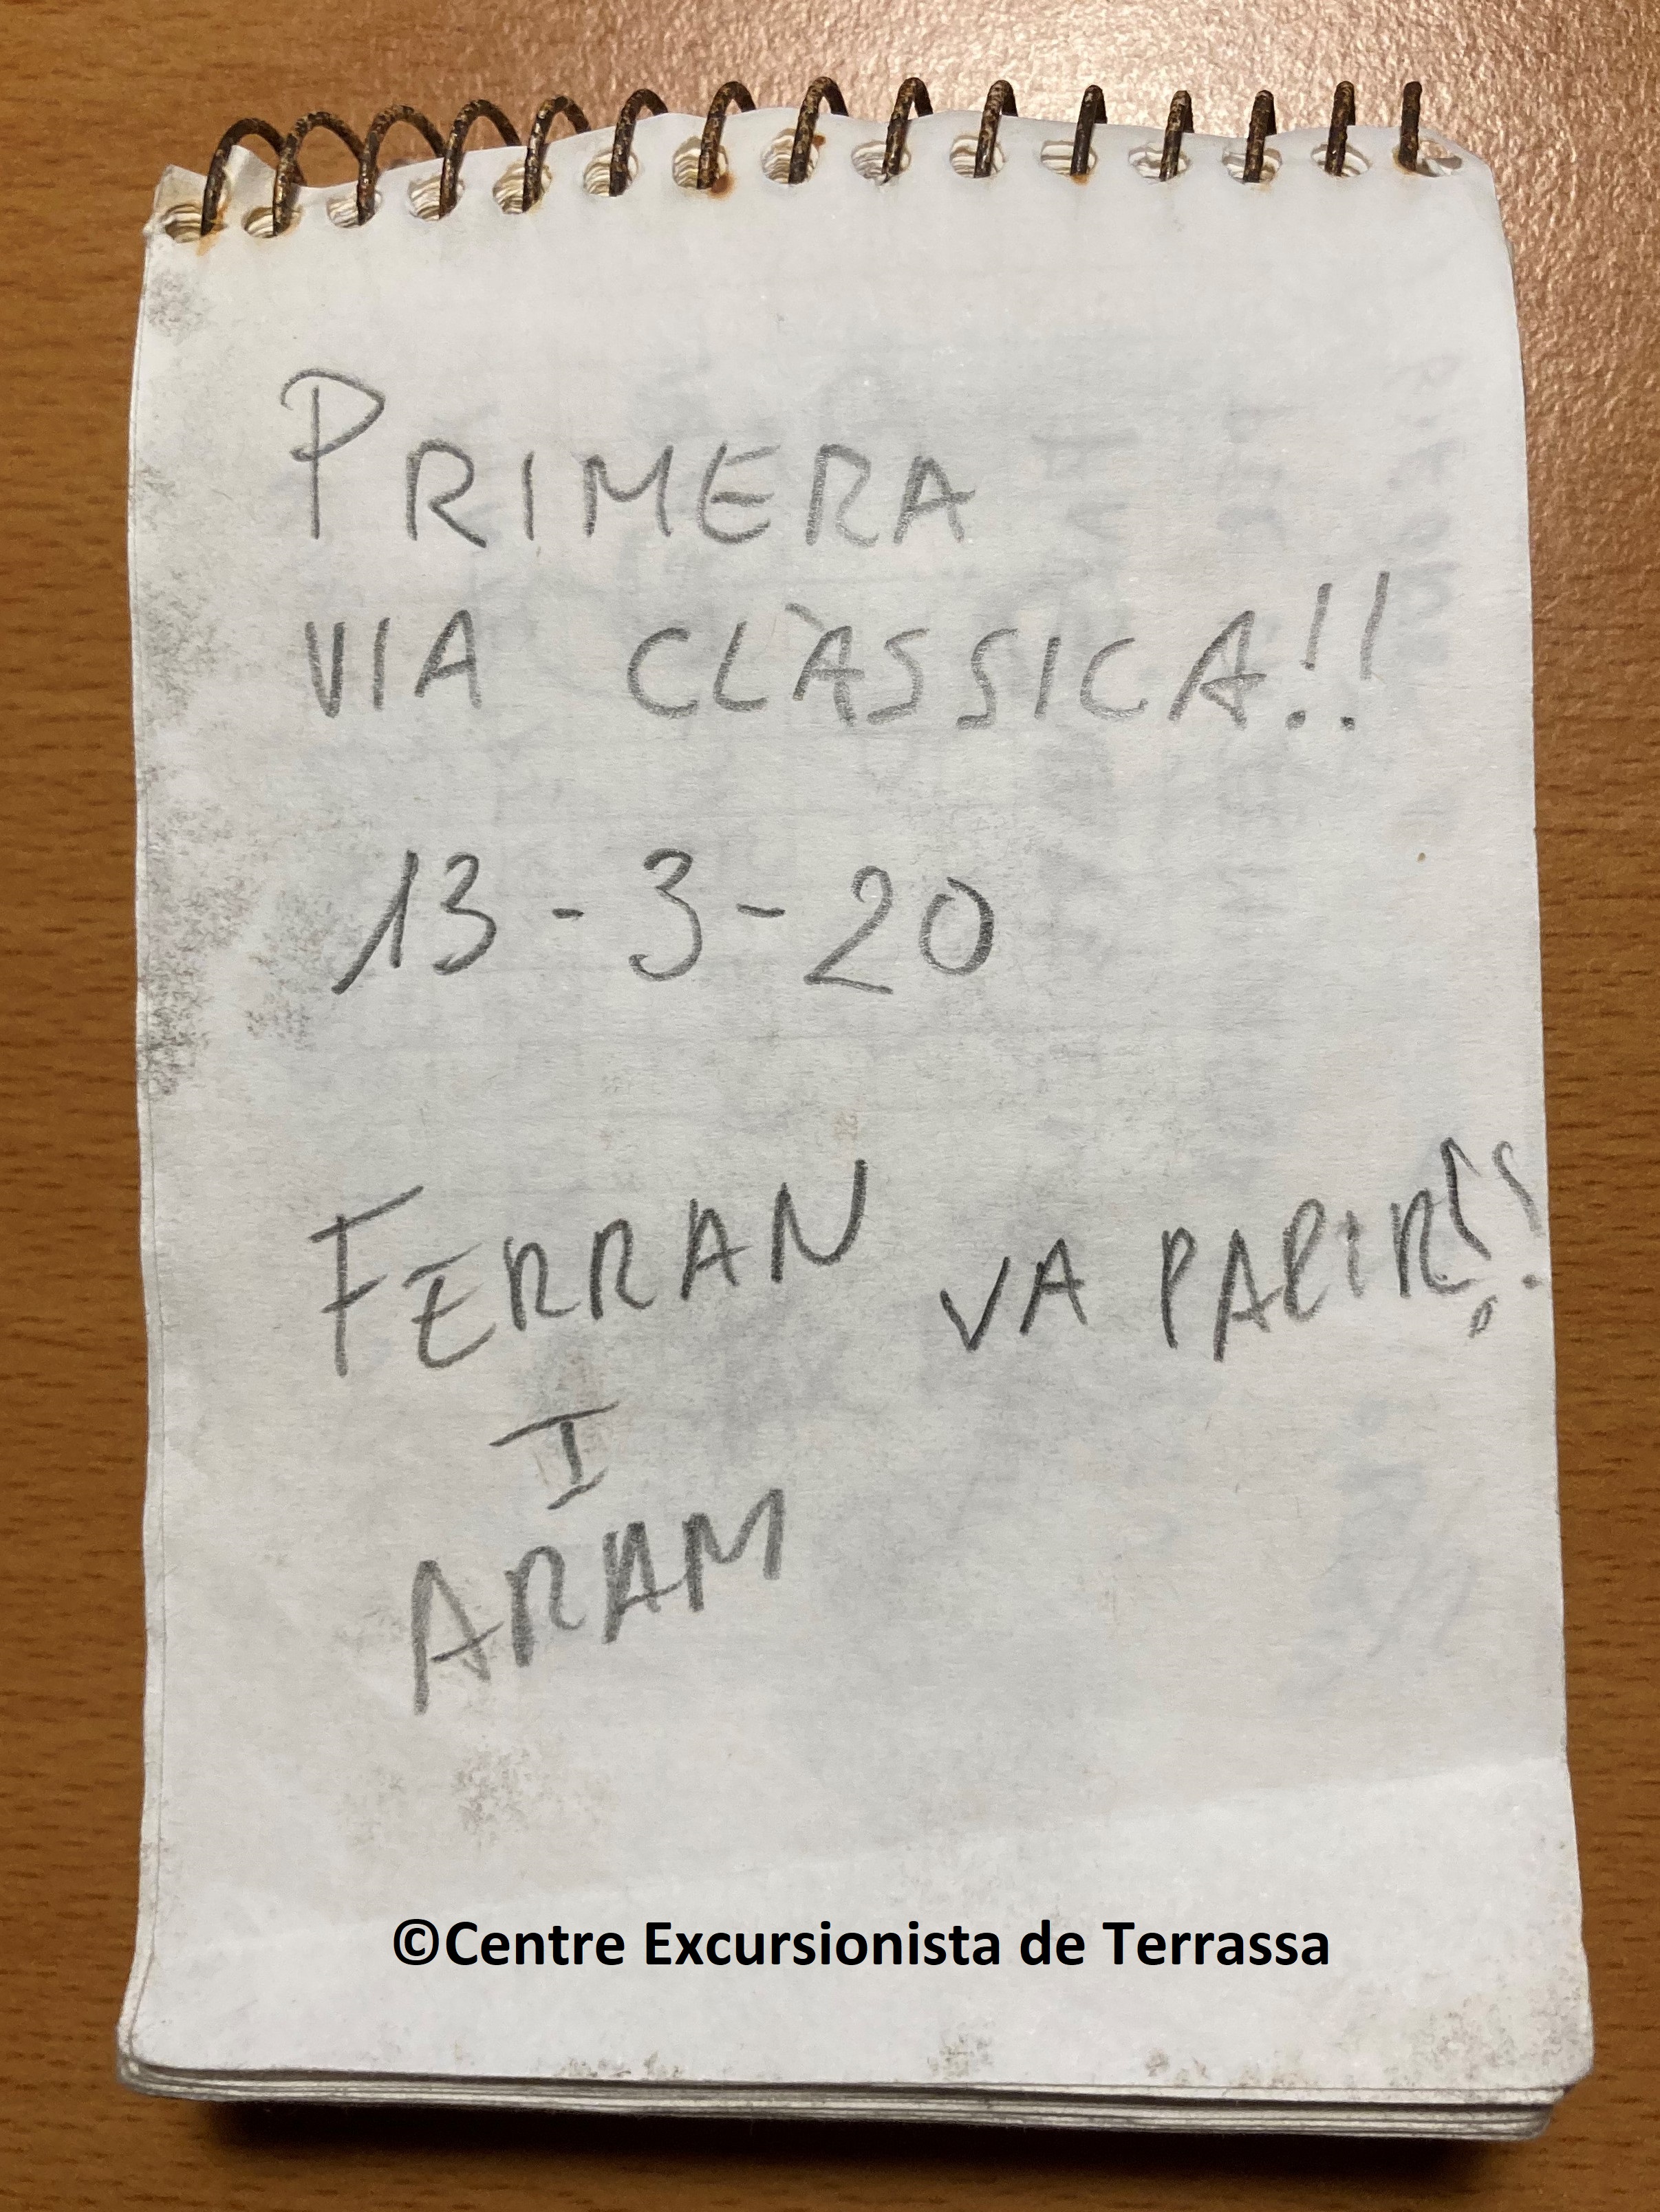 PRIMERA
VIA CLÀSSICA!!
13-3-20
FERRAN VA PAPIR!!
I
ARAM
©Centre Excursionista de Terrassa